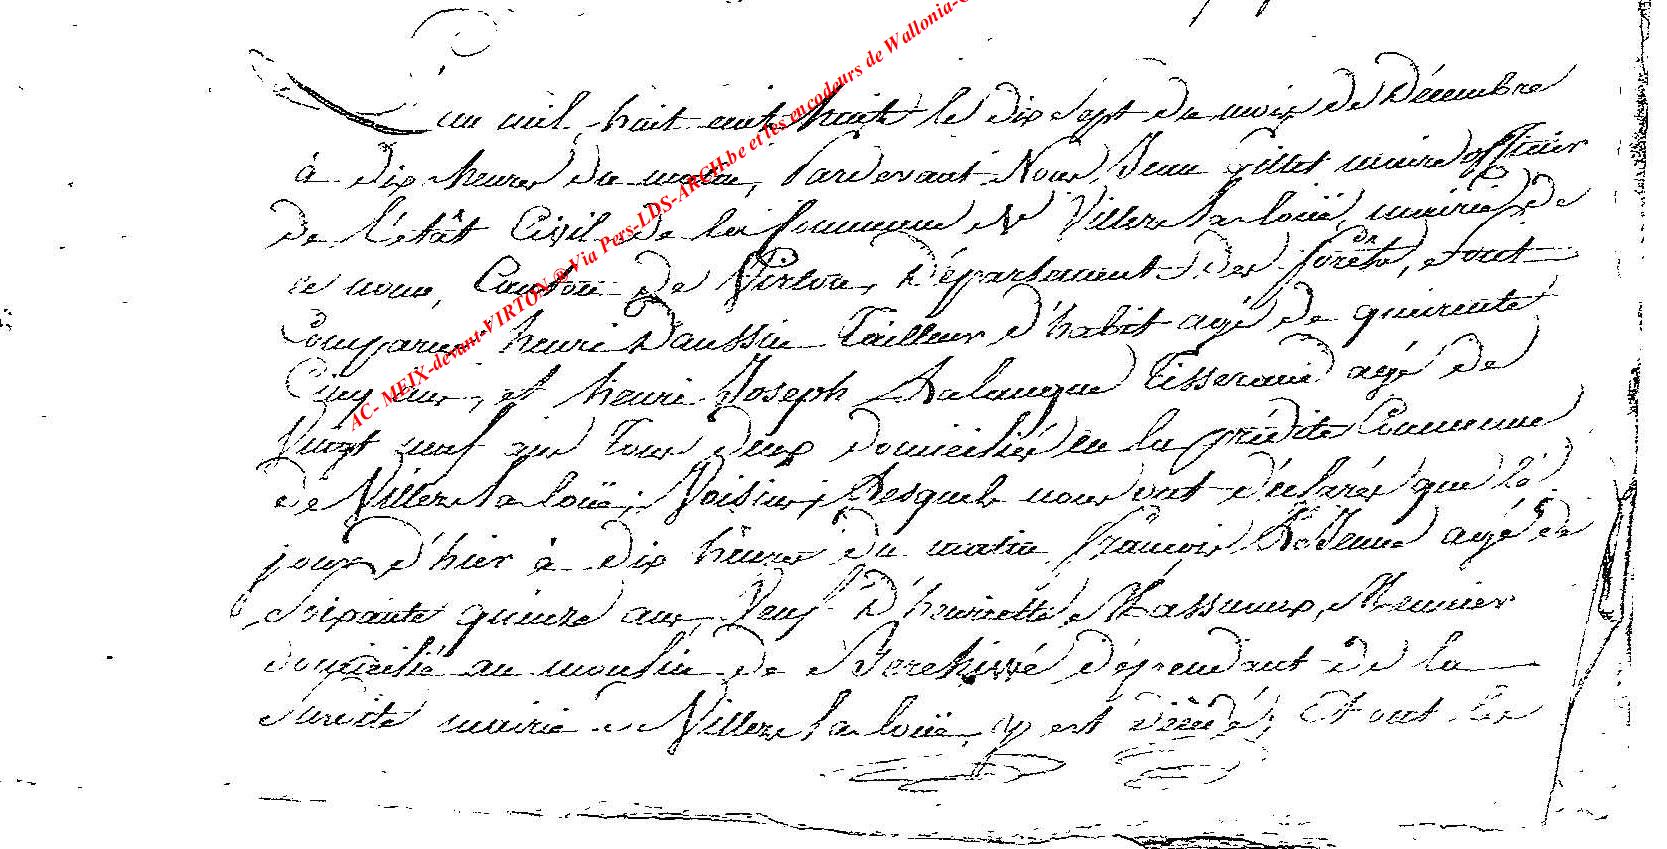 L'an mil huit cent huit le dix sept du mois de Décembre
à dix heures du matin, Pardevant Nous Jean Gillet maire officier
de l'état Civil de la Commune de Villers la loüe, mairie de
ce nom, Canton de Virton, Département des forêts, sont
Comparus henri Daussin Tailleur d'habit agé de quarente
Cinq ans, et henri Joseph Lalangue Tisserand agé de
Vingt neuf ans Tous deux domiciliés en la prédite Commune
de Villers la loüe, Voisins, Lesquels nous ont déclarés que le
jour d'hier à dix heures du matin françois agé de
Soixante quinze ans, Veuf D'henriette Massonnex, Meunier
domicilié au moulin de Berchiwé dépendant de la
Susdite mairie de Villers la loüe, y est décédé; Et ont les
AC- MEIX-devant-VIRTON ® Via Pers-LDS-ARCH.be et les encodeurs de Wallonia-